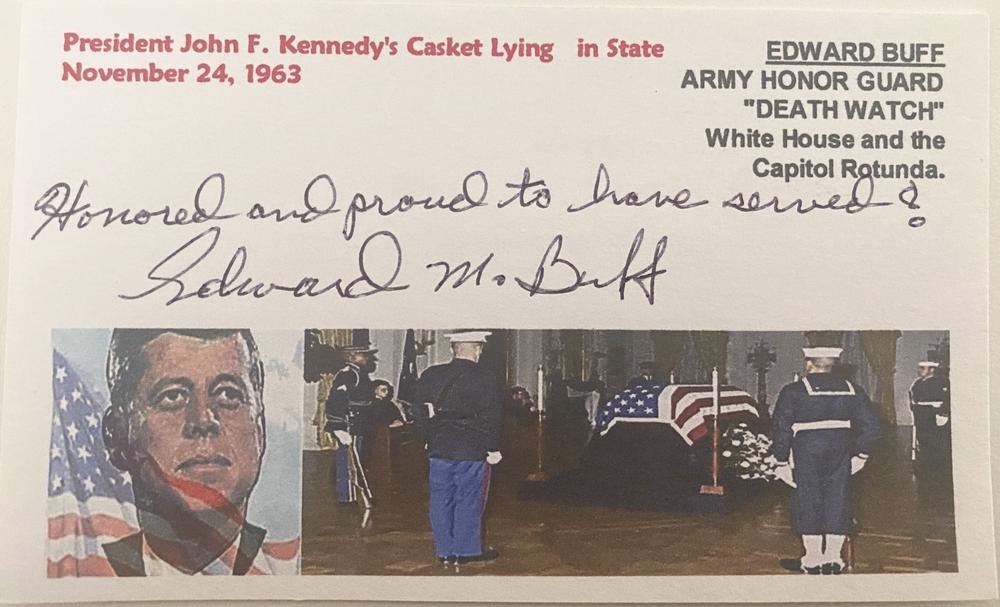 President John F. Kennedy's Casket Lying in State
November 24, 1963
EDWARD BUFF
ARMY HONOR GUARD
"DEATH WATCH"
White House and the
Capitol Rotunda.
Honored and proud to have served!
Edward M. Buff